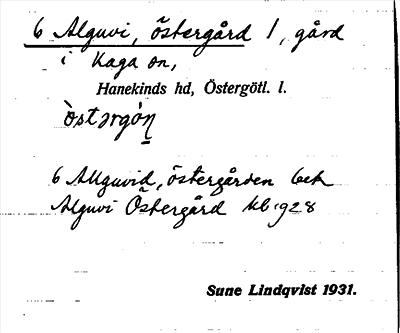 6 Alguvi, Östergård 1, gård
i Kaga sn,
Hanekinds hd, Östergötl. l.
òstərgó̜n̠
6 Alguvid, östergården bet
Alguvi Östergård kb 1928
Sune Lindqvist 1931.